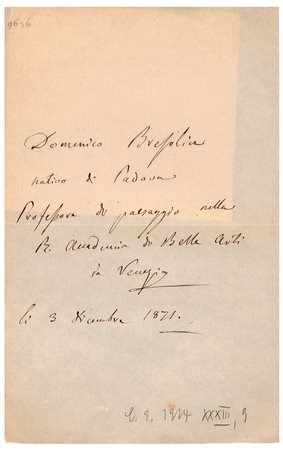 9636
Domenico Bresolin
nativo di Padova
Professore di paesaggio nella
R. Accademia di Belle Arti
in Venezia
li 3 dicembre 1871.
C. E. 1914 XXXIII, 9